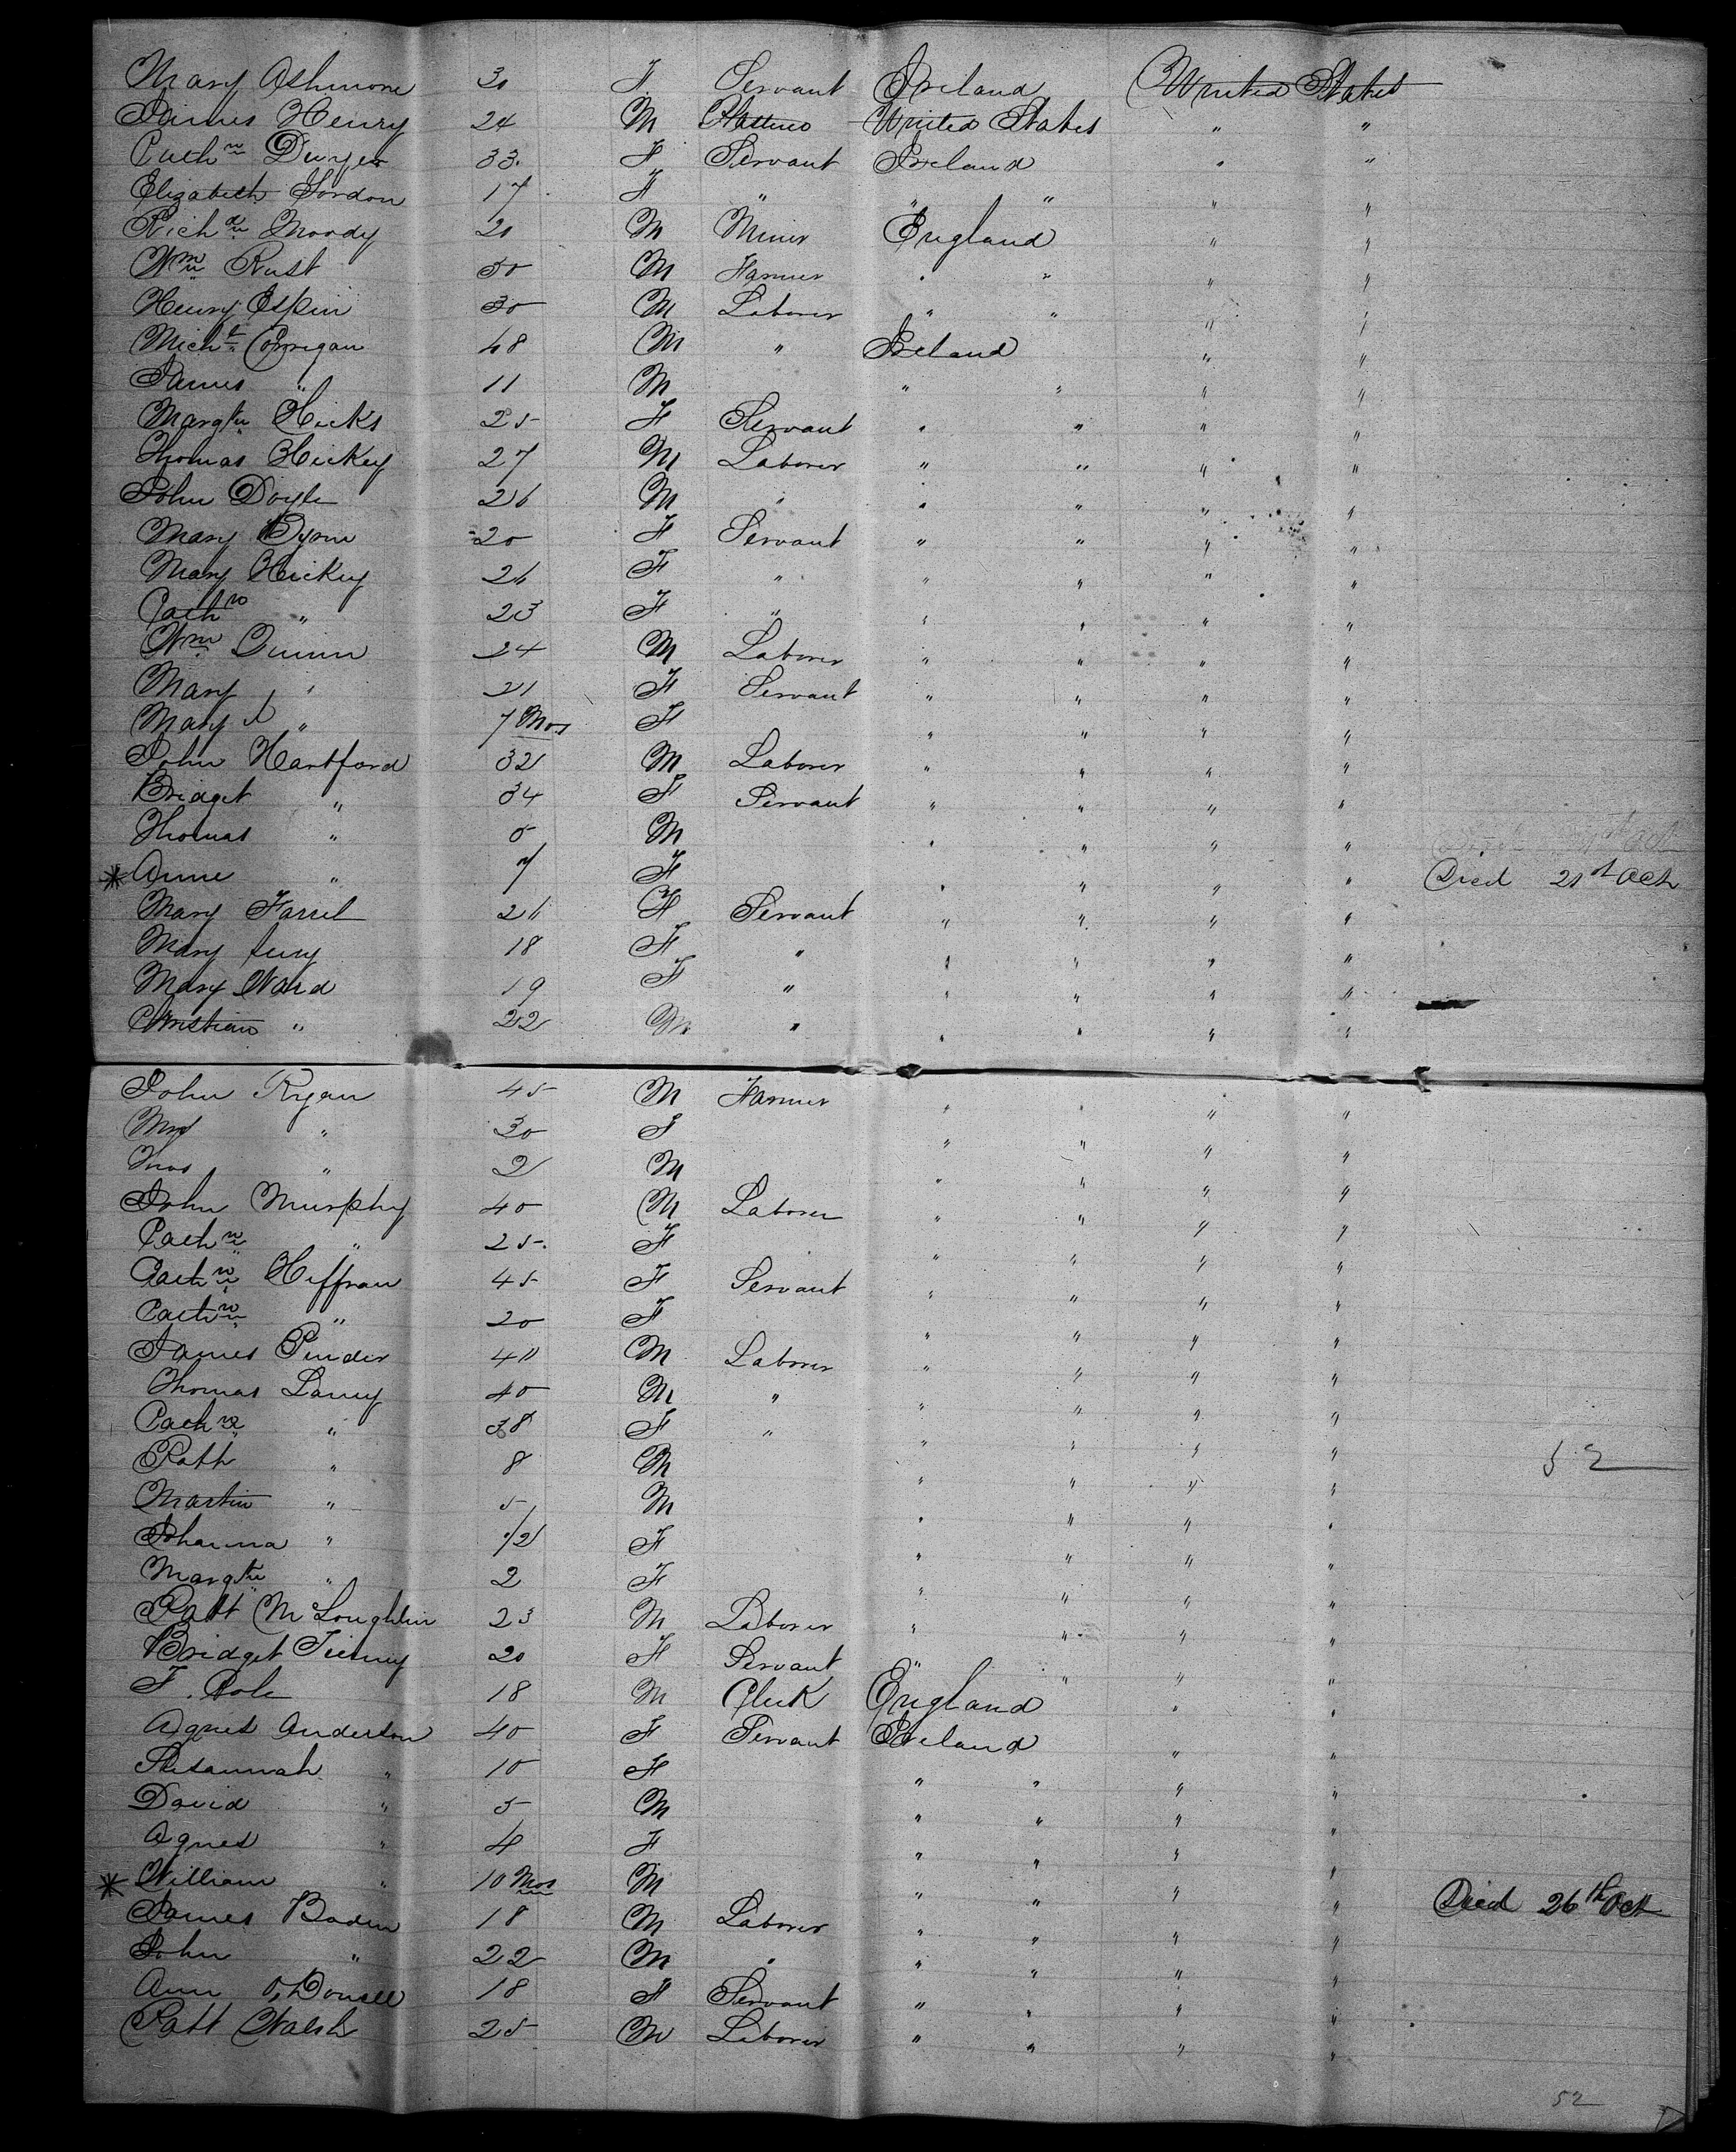 Mary Ashmore 30 F. Servant Ireland United States
James Henry 24 M United States " "
Cathn Dwyer 33. F Servant Ireland " "
Elizabeth Gordon 17 F " " " " "
Richd Moody 20 M Miner England " "
Wm Rust 50 M Farmer " " " "
Henry Espin 30 M Laborer " " " "
Michl Corrigan 48 M " Ireland " "
James " 11 M " " " "
Margt Hicks 25 F Servant " " " "
Thomas Hickey 27 M Laborer " " " "
John Doyle 26 M " " " " "
Mary Byrne 20 F Servant " " " "
Mary Hickey 26 F " " " " "
Cathn " 23 F " " " " "
Wm Quinn 24 M Laborer " " " "
Mary " 21 F Servant " " " "
Mary " 7 Mos F " " " "
John Hartford 32 M Laborer " " " "
Bridget " 34 F Servant " " " "
Thomas " 5 M " " " "
* Anne " 7 F " " " " Died 21st Oct
Mary Farrel 26 F Servant " " " "
Mary 18 F " " " " "
Mary Ward 19 F " " " " "
Christian " 22 M " " " " "
John Ryan 45 M Farmer " " " "
Mrs " 30 F " " " "
Thos " 2 M " " " "
John Murphy 40 M Laborer " " " "
Cathn " 25. F " " " "
Cathn Heffran 45 F Servant " " " "
Cathn " 20 F " " " "
James Pender 40 M Laborer " " " "
Thomas Laney 40 M " " " " "
Cathn " 38 F " " " " "
Patk " 8 M " " " " 52
Martin " 5 M " " " "
Johanna " 12 F " " " "
Margt " 2 F " " " "
Patt McLoughlin 23 M Laborer " " " "
Bridget Tierney 20 F Servant " " " "
F. Cole 18 M Clerk England " "
Agnes Anderson 40 F Servant Ireland " "
Susannah " 10 F " " " "
David " 5 M " " " "
Agnes " 4 F " " " "
* William " 10 Mos M " " " " Died 26th Oct
James Boden 18 M Laborer " " " "
John " 22 M " " " " "
Ann O,Donell 18 F Servant " " " "
Patt Walsh 25 M Laborer " " " "
52